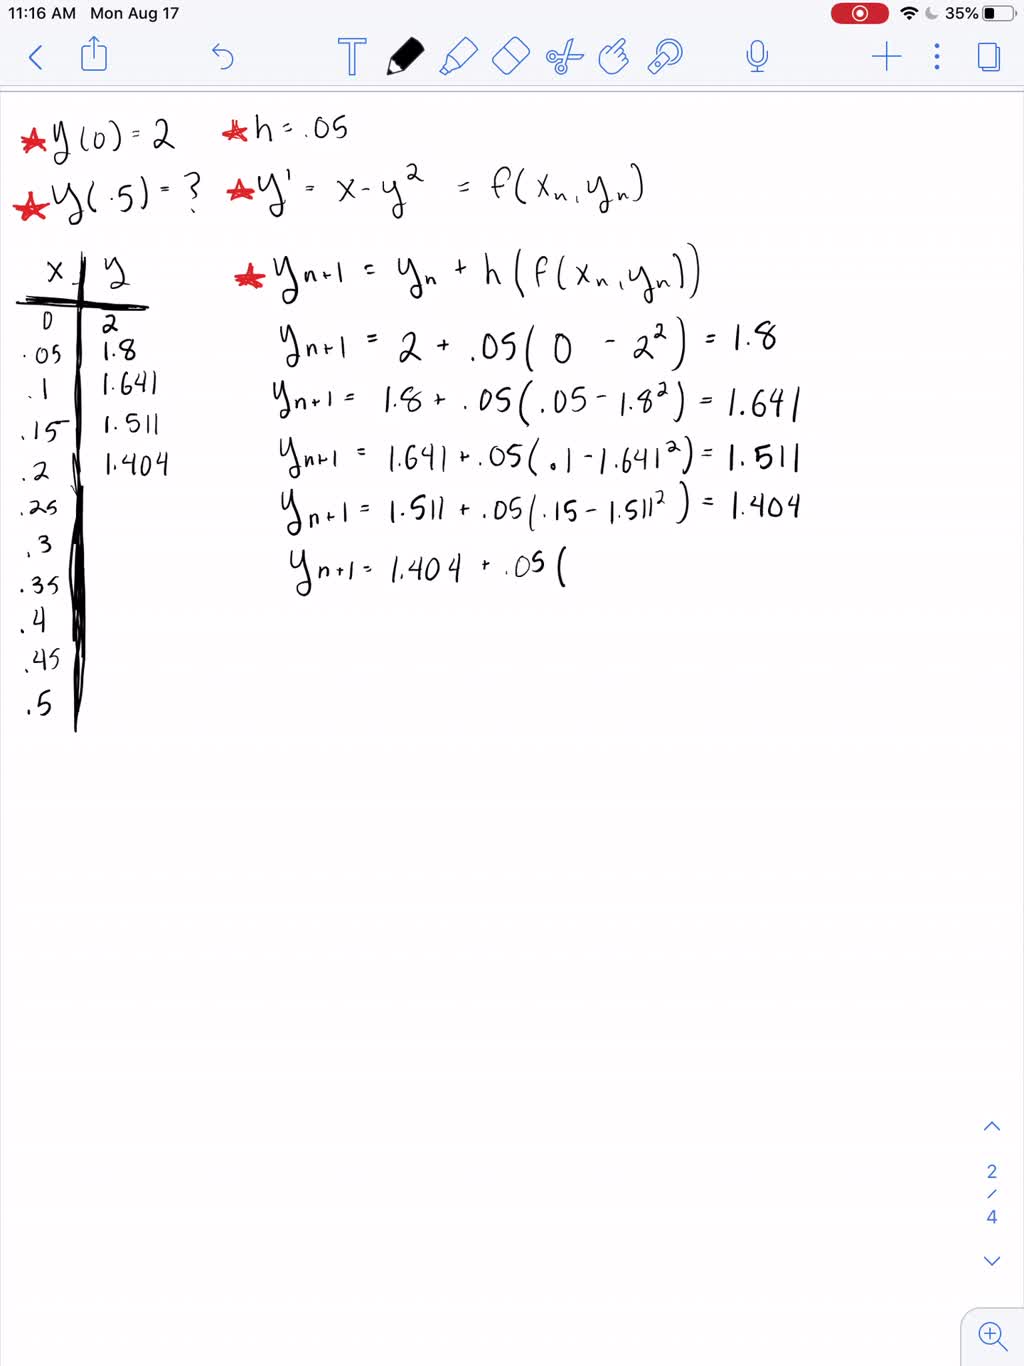 11:16 AM Mon Aug 17 35%
T
y(0) = 2 h = .05
y(.5) = ? y' = x - y² = f(xₙ, yₙ)
x y
0 2
.05 1.8
.1 1.641
.15 1.511
.2 1.404
.25
.3
.35
.4
.45
.5
yₙ₊₁ = yₙ + h(f(xₙ, yₙ))
yₙ₊₁ = 2 + .05(0 - 2²) = 1.8
yₙ₊₁ = 1.8 + .05(.05 - 1.8²) = 1.641
yₙ₊₁ = 1.641 + .05(.1 - 1.641²) = 1.511
yₙ₊₁ = 1.511 + .05(.15 - 1.511²) = 1.404
yₙ₊₁ = 1.404 + .05(
2
/
4